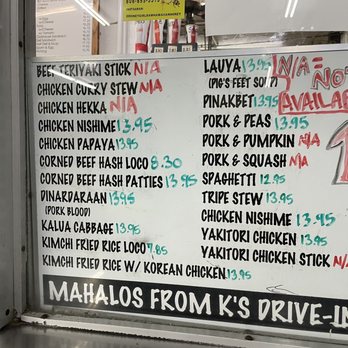 BEEF TERIYAKI STICK N/A
CHICKEN CURRY STEW N/A
CHICKEN HEKKA N/A
CHICKEN NISHIME 13.95
CHICKEN PAPAYA 13.95
CORNED BEEF HASH LOCO 8.30
CORNED BEEF HASH PATTIES 13.95
DINARDARAAN 13.95
(PORK BLOOD)
KALUA CABBAGE 13.95
KIMCHI FRIED RICE LOCO 7.85
KIMCHI FRIED RICE W/ KOREAN CHICKEN 13.95
LAUYA 13.95
(PIG'S FEET SOUP)
PINAKBET 13.95
PORK & PEAS 13.95
PORK & PUMPKIN N/A
PORK & SQUASH N/A
SPAGHETTI 12.95
TRIPE STEW 13.95
CHICKEN NISHIME 13.95
YAKITORI CHICKEN 13.95
YAKITORI CHICKEN STICK N/A
N/A =
NO
AVAILA
MAHALOS FROM K'S DRIVE-I